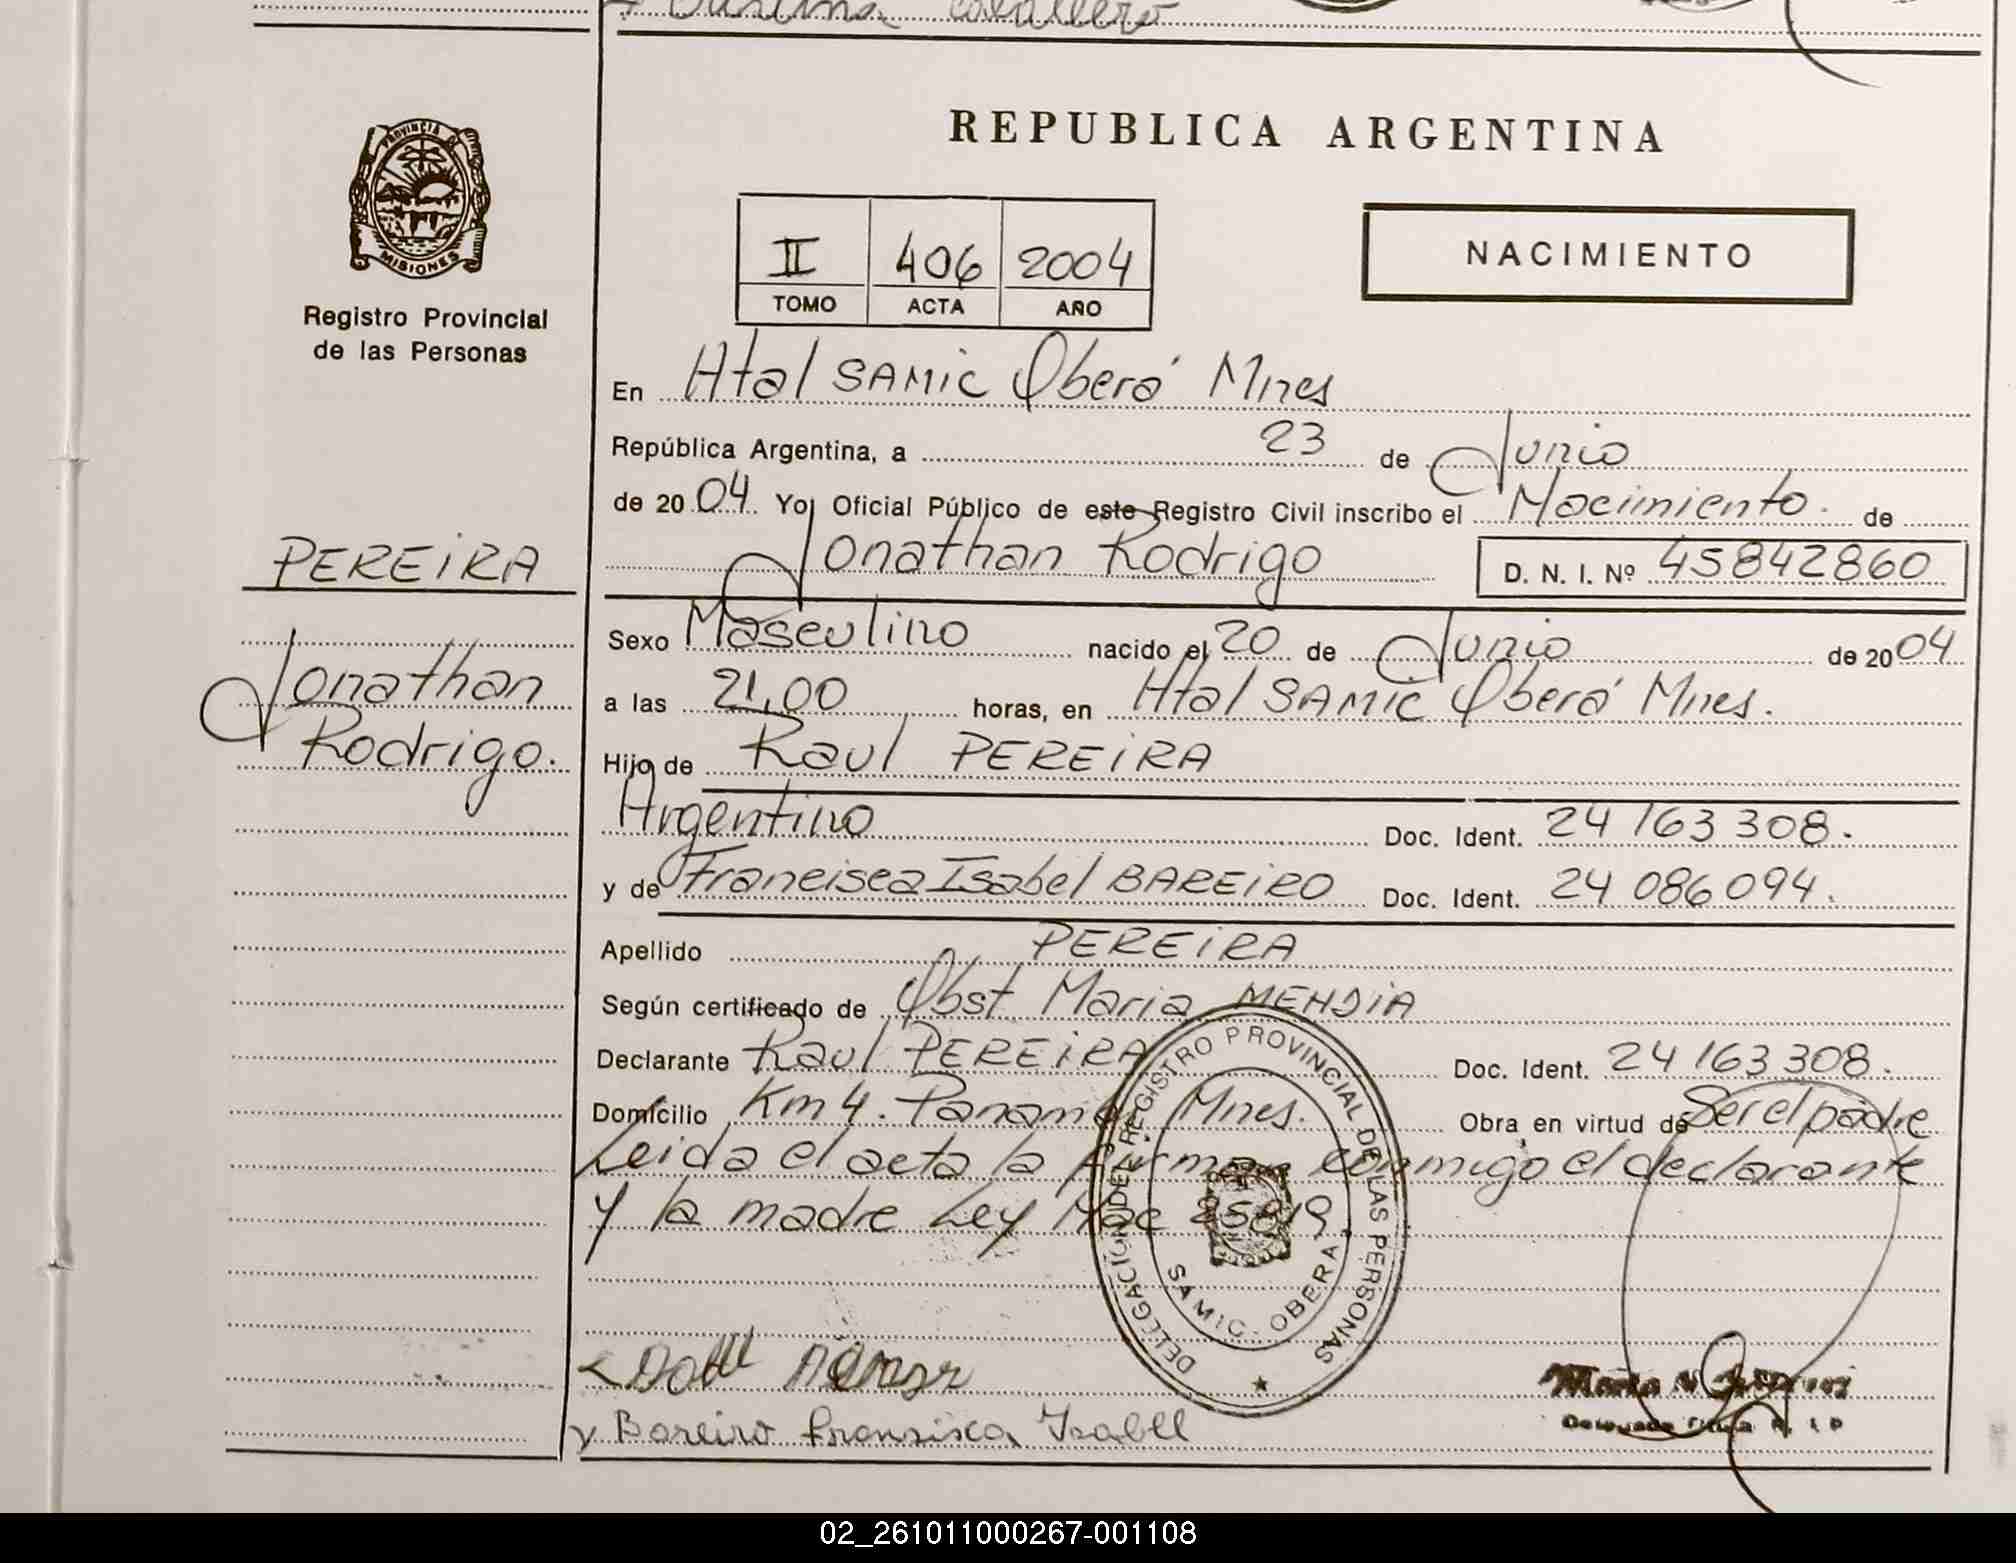 Cavallero
REPUBLICA ARGENTINA
PROVINCIA DE
MISIONES
Registro Provincial
de las Personas
II 406 2004
TOMO ACTA AÑO
NACIMIENTO
En Htal SAMIC Oberá Mnes
República Argentina, a 23 de Junio
de 2004. Yo, Oficial Público de este Registro Civil inscribo el Nacimiento. de
PEREIRA
Jonathan Rodrigo D. N. I. Nº 45842860
Sexo Masculino nacido el 20 de Junio de 2004
Jonathan
Rodrigo.
a las 21,00 horas, en Htal SAMIC Oberá Mnes.
Hijo de Raul PEREIRA
Argentino Doc. Ident. 24 163 308.
y de Francisca Isabel BAREIRO Doc. Ident. 24 086 094.
Apellido PEREIRA
Según certificado de Obst Maria MENDIA
Declarante Raul PEREIRA Doc. Ident. 24 163 308.
Domicilio Km 4. Panamb Mnes. Obra en virtud de Ser el padre
Leida el acta la firman conmigo el declarante
y la madre Ley Nac 25819
DELEGACIÓN DEL REGISTRO PROVINCIAL DE LAS PERSONAS
SAMIC - OBERA
Bareiro Fransisca Isabel
02_261011000267-001108